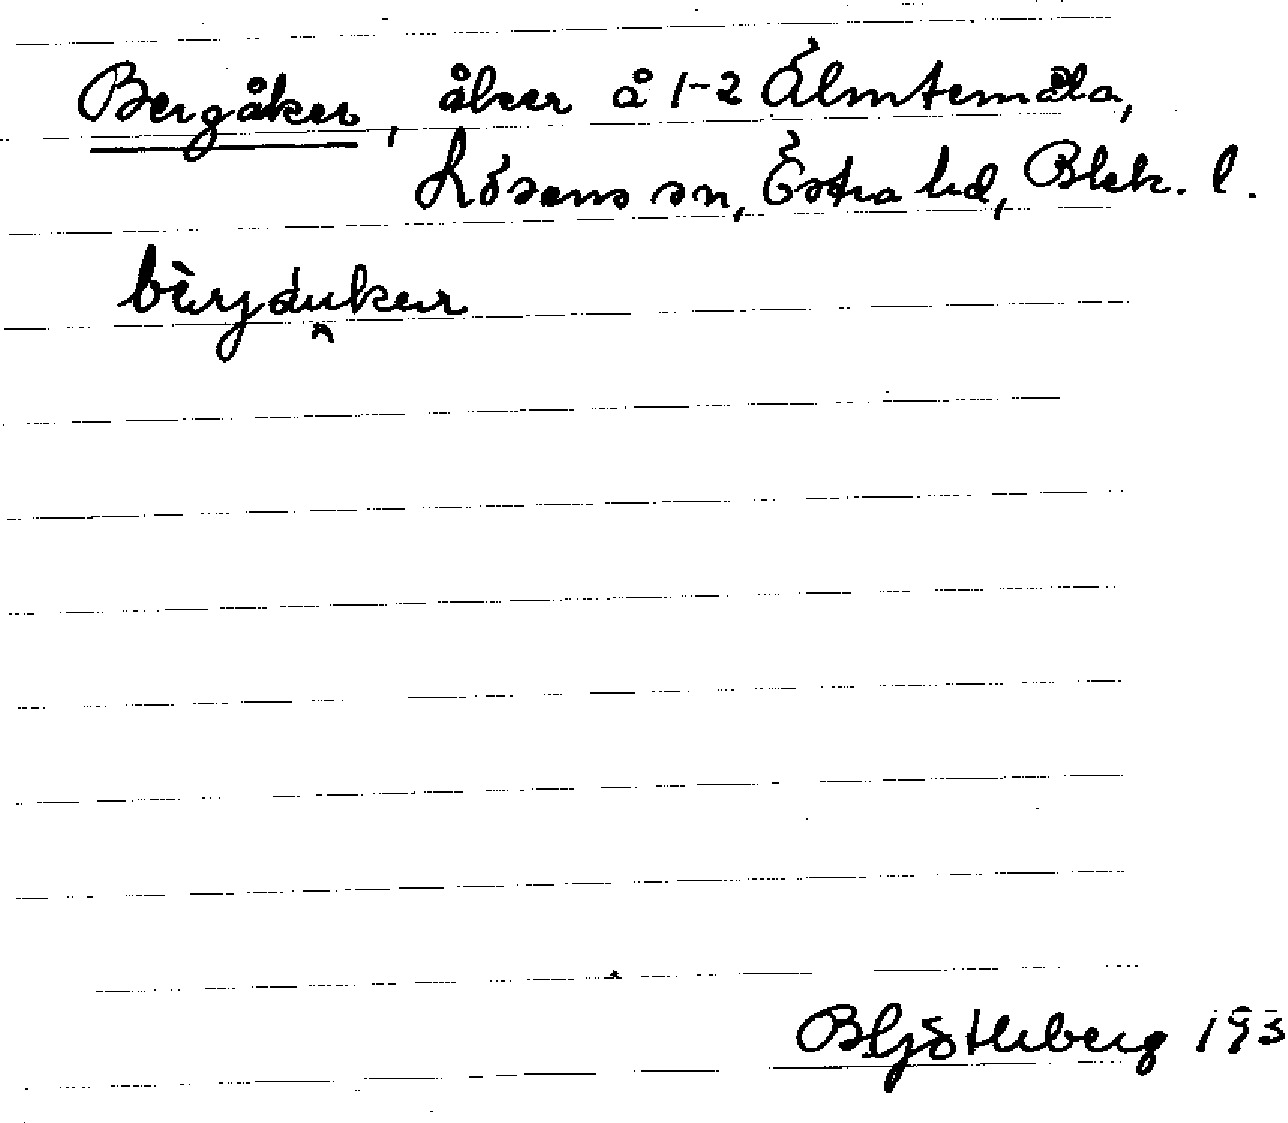 Bergåker, åker å 1-2 Älmtemåla,
Lösens sn, Östra hd, Blek. l.
bèrjåukeur
B Ejöthberg 193